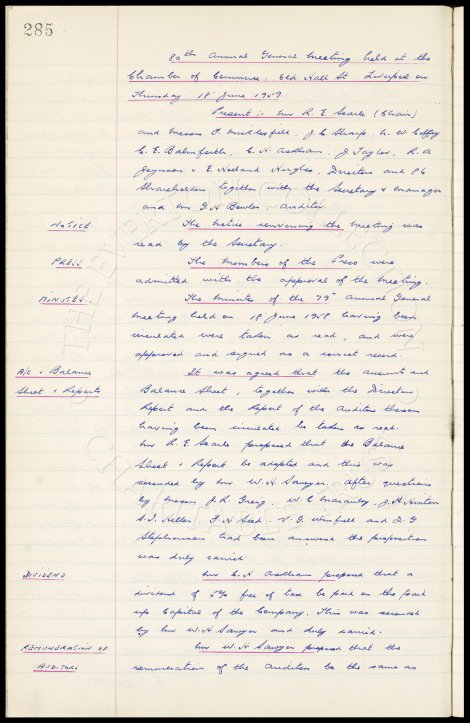 285
80th Annual General Meeting held at the
Chamber of Commerce, Old Hall St, Liverpool on
Thursday 18 June 1959.
Present :- Mr R. E. Searle (Chair)
and Messrs F. Micklesfield, J. C. Sharp, W. W. Caffrey
C. E. Balmforth, C. H. Askham, J. Taylor, R. A
Joynson & E. Holland Hughes, Directors and 86
Shareholders together with the Secretary & Manager
and Mr G. H. Bowler, Auditor.
NOTICE The Notice convening the meeting was
read by the Secretary.
PRESS The members of the Press were
admitted with the approval of the meeting.
MINUTES The Minutes of the 79th Annual General
Meeting held on 18 June 1958 having been
circulated were taken as read, and were
approved and signed as a correct record.
A/c & Balance It was agreed that the account and
Sheet & Reports Balance Sheet, together with the Directors
Report and the Report of the Auditors thereon
having been circulated be taken as read.
Mr R. E. Searle proposed that the Balance
Sheet & Report be adopted and this was
seconded by Mr W. H Sawyer. After questions
by Messrs J. R. Greig, W. C. Macauley, J. H. Hinton
S. I. Heller, F. H. V. G. and
Stephenson had been answered the proposition
was duly carried.
DIVIDEND Mr C. H Askham proposed that a
dividend of 5% free of tax be paid on the paid
up Capital of the Company. This was seconded
by Mr W. H Sawyer and duly carried.
REMUNERATION OF Mr W. H Sawyer proposed that the
AUDITORS remuneration of the Auditors be the same as
THE EVERTON COLLECTION